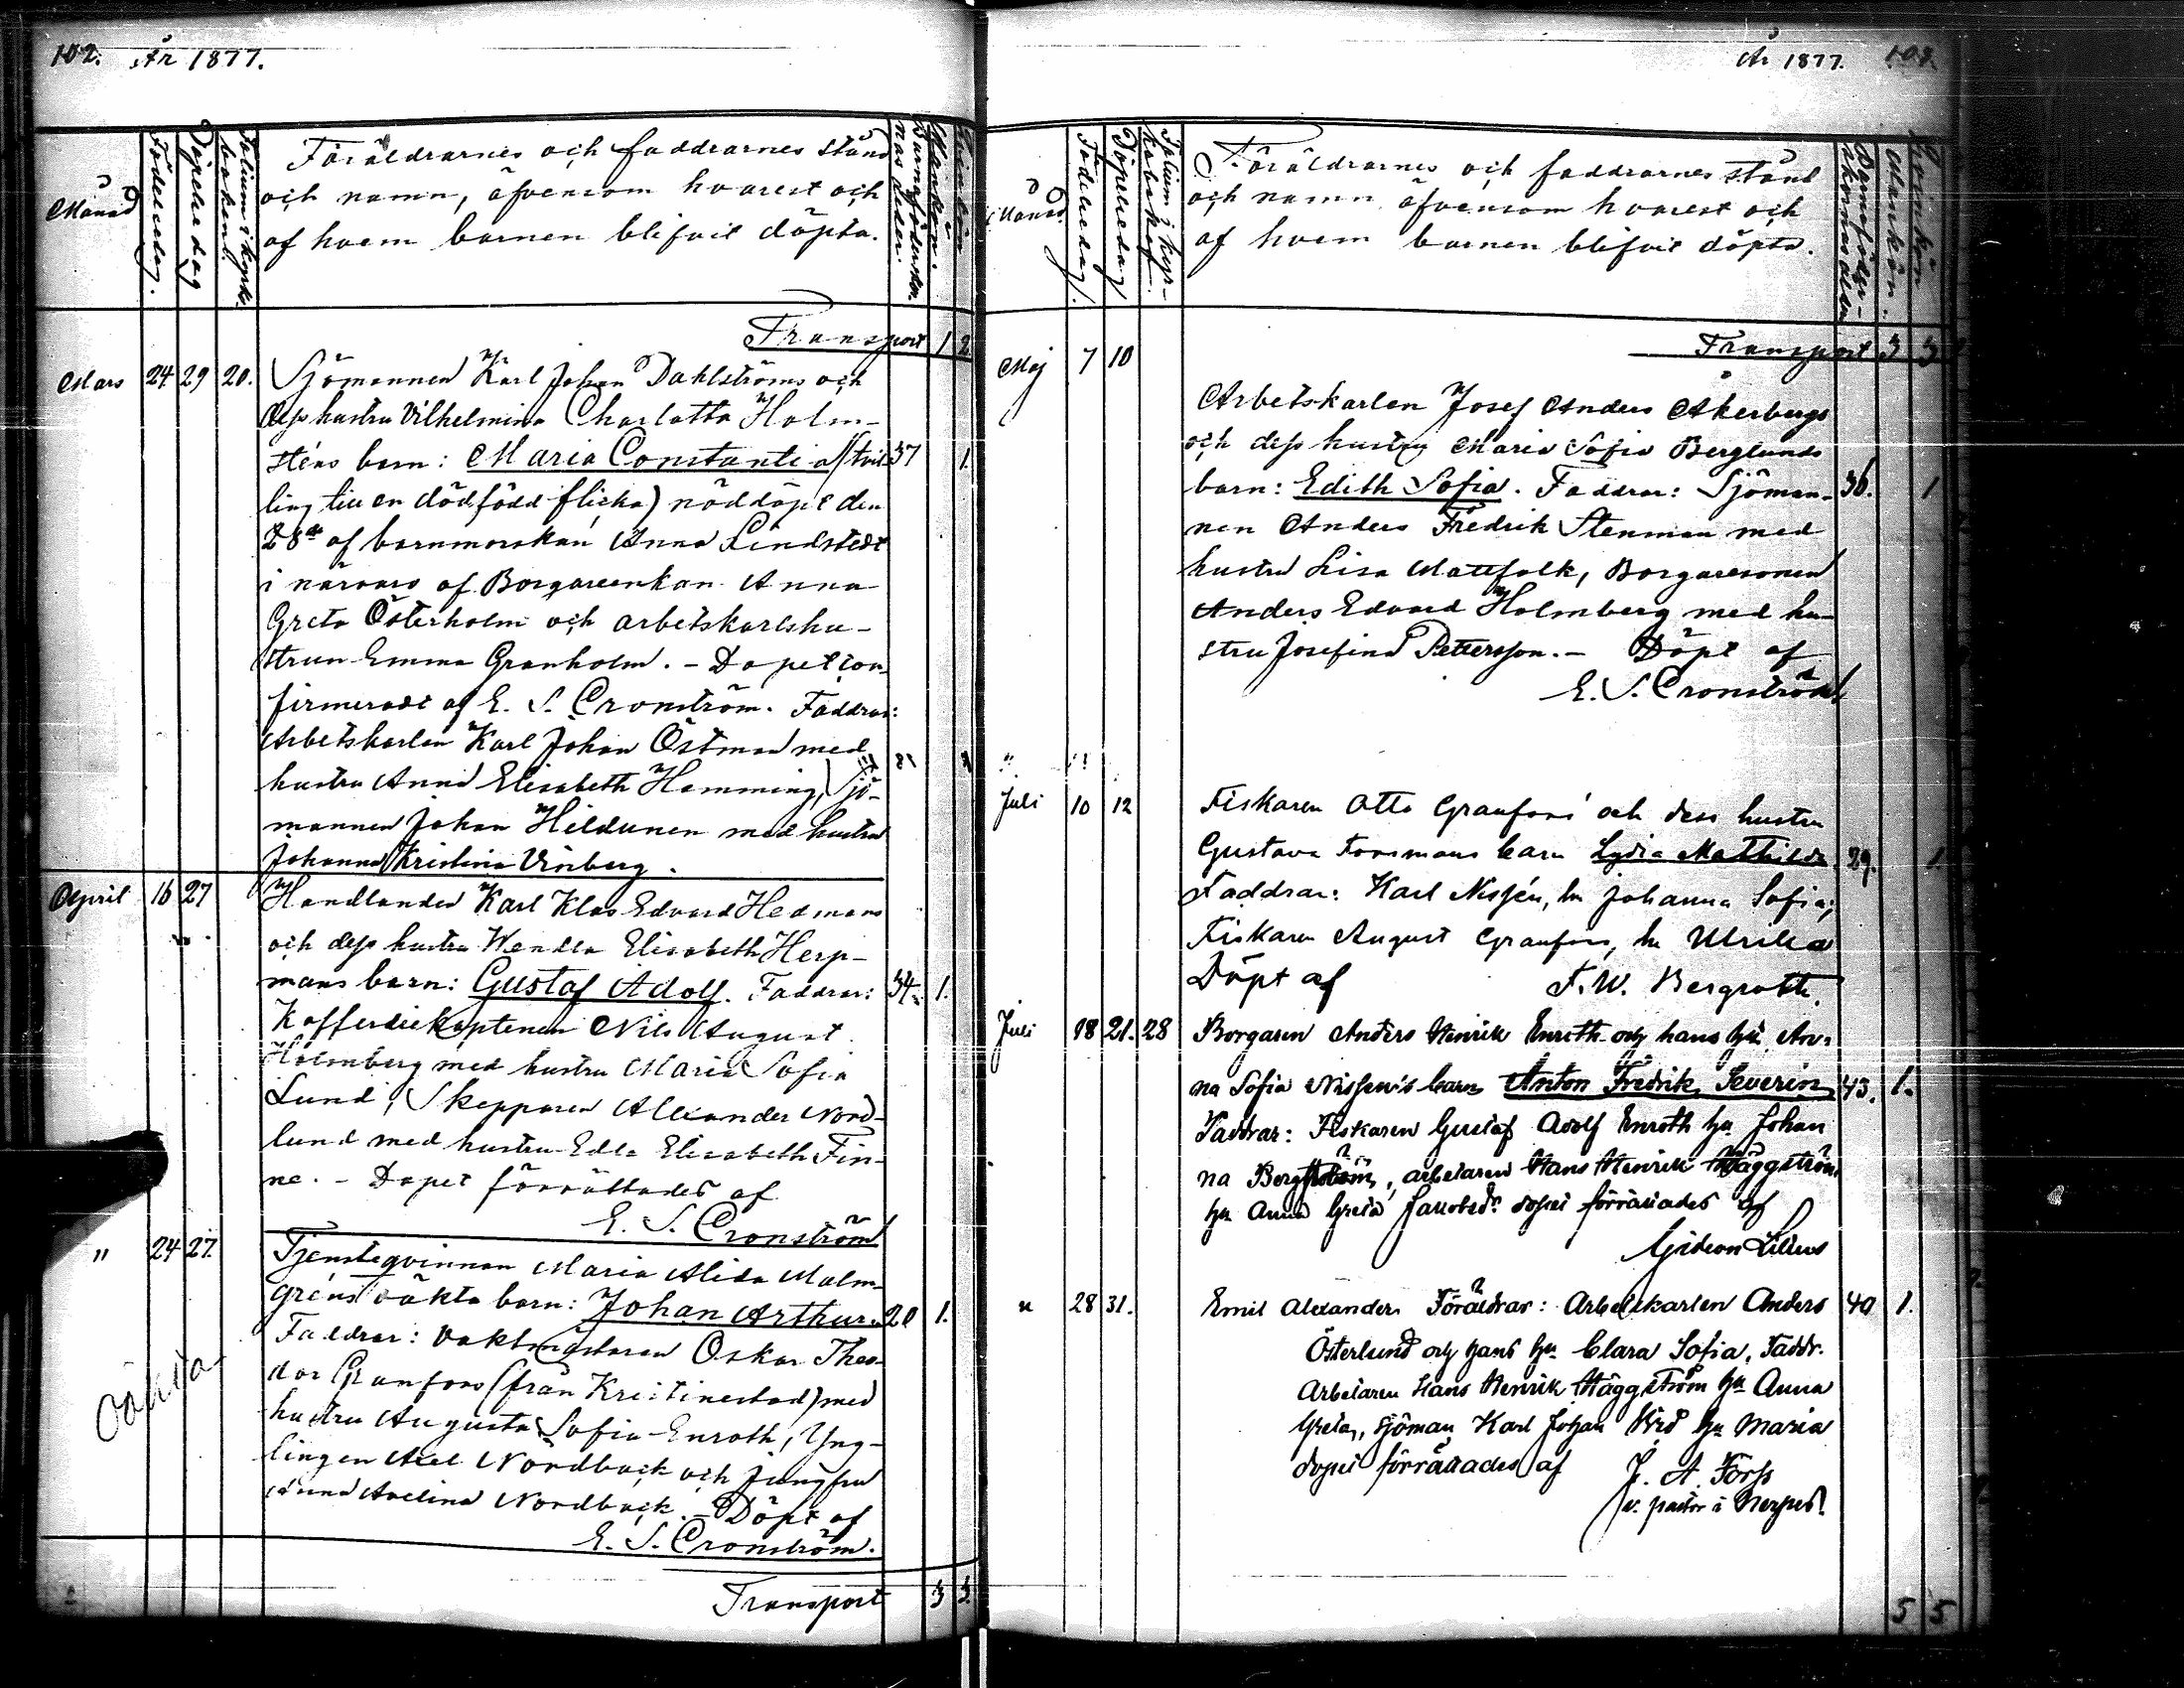 102. År 1877.
Månad
Födelsedag.
Döpelsedag
Folium i kyrkoboken.
Föräldrarnes och faddrarnes stånd
och namn, äfvensom hvarest och
af hvem barnen blifvit döpta.
Barnaföderskornas ålder.
Mankön.
Qvinkön
Transport 1 2
Mars 24 29 20. Sjömannen Karl Johan Dahlströms och
dess hustru Vilhelmina Charlotta Holm-
sténs barn: Maria Constantia (tvil- 37 1.
ling till en dödfödd flicka) nöddöpt den
28de af barnmorskan Anna Lindstedt
i närvaro af Borgareenkan Anna
Greta Österholm och arbetskarlshu-
strun Emma Granholm. - Dopet con-
firmeradt af E. S. Cronström. Faddrar:
Arbetskarlen Karl Johan Östman med
hustru Anna Elisabeth Hemming, Sjö-
mannen Johan Hildunen med hustru
Johanna Kristina Vinberg.
April 16 27 Handlanden Karl Klas Edvard Hedmans
och dess hustru Wendla Elisabeth Herp-
mans barn: Gustaf Adolf. Faddrar: 34. 1.
Kofferdiekaptenen Nils August
Holmberg med hustru Maria Sofia
Lund, Skepparen Alexander Nord-
lund med hustru Edla Elisabeth Fin-
ne. - Dopet förrättades af
E. S. Cronström
" 24 27. Tjensteqvinnan Maria Alida Malm-
gréns oäkta barn: Johan Arthur. 20 1.
Faddrar: Vaktmästaren Oskar Theo-
dor Granfors (från Kristinestad) med
hustru Augusta Sofia Enroth, Yng-
lingen Axel Nordback och jungfru
Anna Avelina Nordback. - Döpt af
E. S. Cronström.
oäkta
Transport 3 3.
År 1877. 103.
Månad.
Födelsedag.
Döpelsedag
Folium i kyrkobokef.
Föräldrarnes och faddrarnes stånd
och namn, äfvensom hvarest och
af hvem barnen blifvit döpta.
Barnaföderskornas ålder
Mankön.
Qvinkön
Transport 3 3
Maj 7 10
Arbetskarlen Josef Anders Åkerbergs
och dess hustru Maria Sofia Berglunds
barn: Edith Sofia. Faddrar: Sjöman- 36. 1
nen Anders Fredrik Stenman med
hustru Lisa Mattfolk, Borgaresonen
Anders Edvard Holmberg med hu-
stru Josefina Pettersson. - Döpt af
E. S. Cronström
Juli 10 12 Fiskaren Otto Granfors' och dess hustru
Gustava Forsmans barn Lydia Mathilda. 29. 1
Faddrar: Karl Nissén, hu Johanna Sofia;
Fiskaren August Granfors, hu Ulrika
Döpt af F. W. Bergroth.
Juli 18 21. 28 Borgaren Anders Henrik Enroth och hans hu An-
na Sofia Nissén's barn Anton Fredrik Severin 43. 1.
Faddrar: Fiskaren Gustaf Adolf Enroth hu Johan
na Bergström, arbetaren Hans Henrik Häggström
hu Anna Greta Jakobsdr dopet förrättades af
Gideon Lilius
" 28 31. Emil Alexander Föräldrar: Arbetskarlen Anders 40 1.
Österlund och hans hu Clara Sofia, Faddr.
Arbetaren Hans Henrik Häggström hu Anna
Greta, sjöman Karl Johan hu Maria
dopet förrättades af J. A. Forss
v. pastor i Nerpes.
5 5